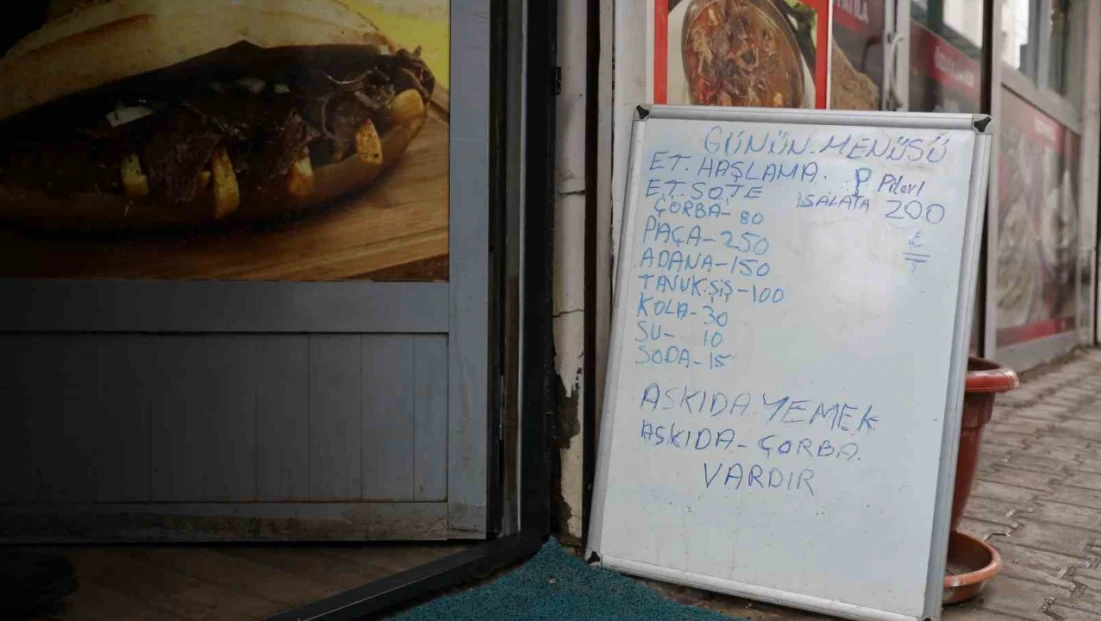 GÜNÜN.MENÜSÜ
ET.HAŞLAMA. P Pilavı
ET.SOTE SALATA 200
ÇORBA-80
PAÇA-250
ADANA-150
TAVUK.ŞİŞ-100
KOLA-30
SU- 10
SODA-15
ASKIDA.YEMEK
ASKIDA-ÇORBA.
VARDIR